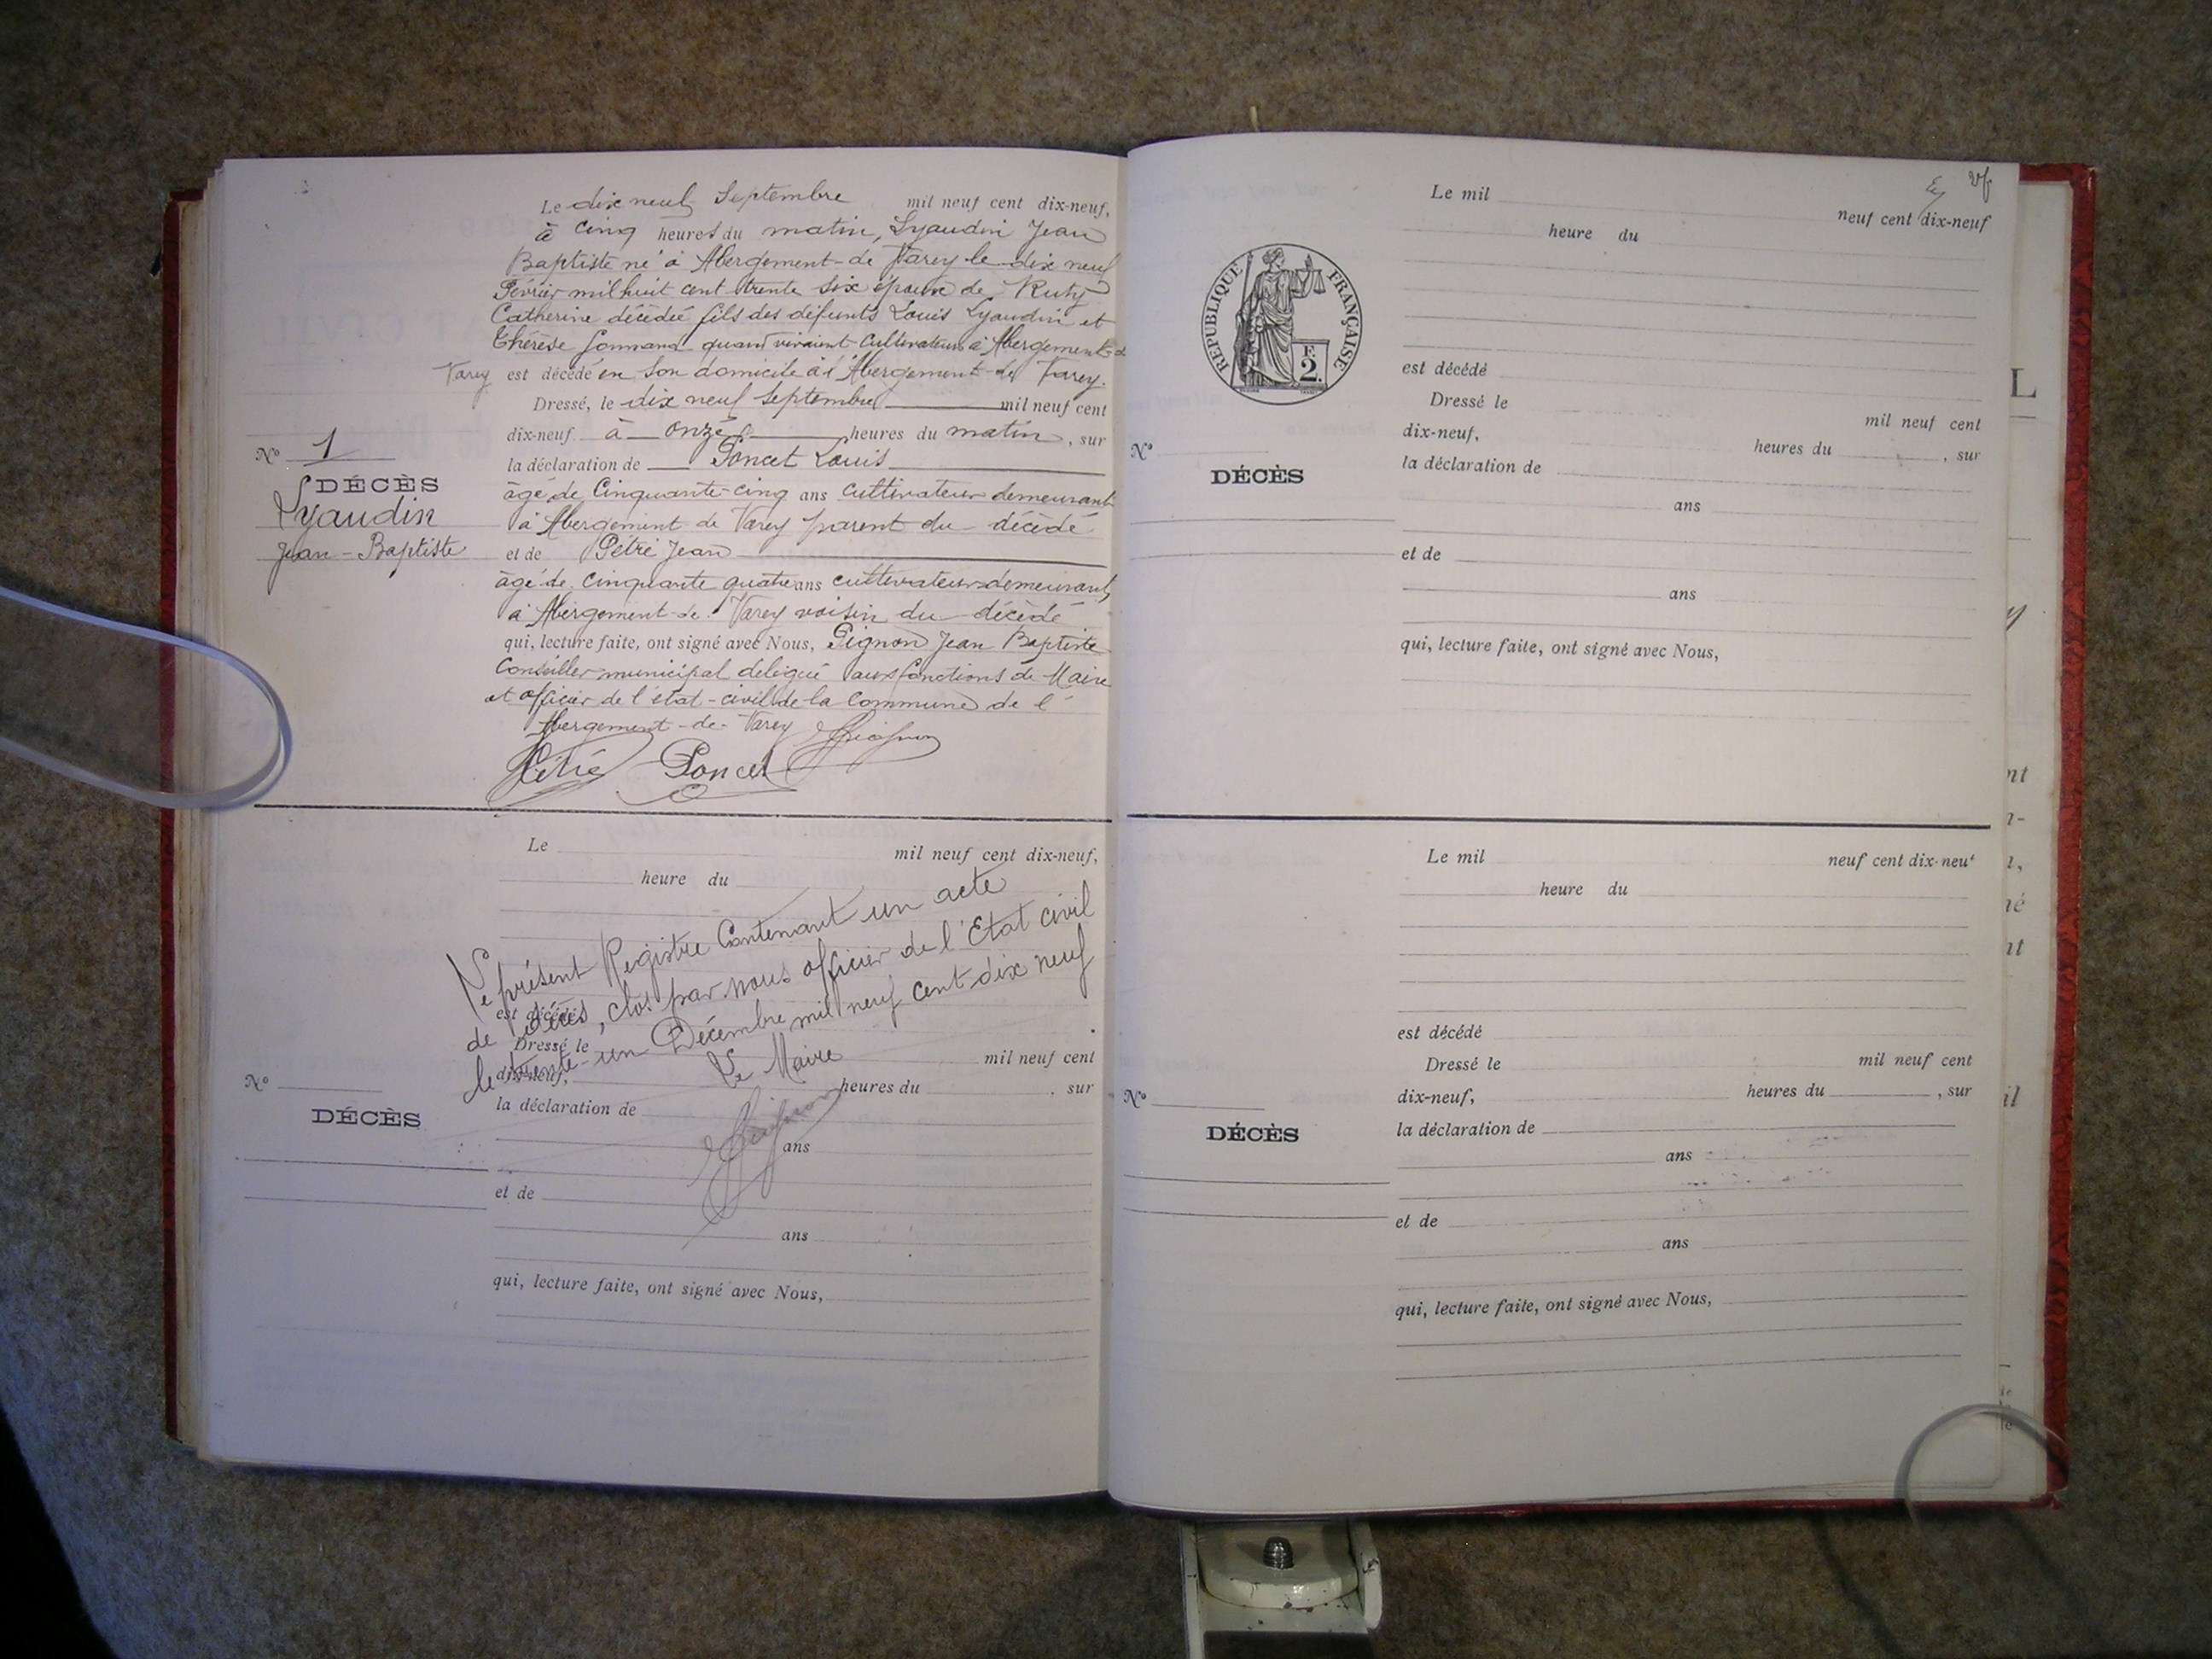 Le dix neuf Septembre mil neuf cent dix-neuf,
à cinq heures du matin, Lyaudin Jean
Baptiste né à Abergement-de Varey le dix neuf
Février mil huit cent trente six époux de Ruty
Catherine décédée fils des défunts Louis Lyaudin et
Thérèse quand vivaient Cultivateurs à Abergement-de
Varey est décédé en son domicile à l'Abergement-de Varey.
Dressé, le dix neuf Septembre mil neuf cent
dix-neuf à onze heures du matin, sur
la déclaration de Poncet Louis
âgé de Cinquante-cinq ans cultivateur demeurant
à Abergement de Varey parent du décédé
et de Pétré Jean
âgé de cinquante quatre ans cultivateur demeurant
à Abergement-de Varey voisin du décédé
qui, lecture faite, ont signé avec Nous, Pignon Jean Baptiste
Conseiller municipal délégué aux fonctions de Maire
et officier de l'état-civil de la Commune de l'
Abergement-de-Varey
Pétré Poncet
N° 1
DÉCÈS
Lyaudin
Jean-Baptiste
Le mil neuf cent dix-neuf,
heure du
Le présent Registre Contenant un acte
de décès, clos par nous officier de l'Etat civil
le trente-un Décembre mil neuf cent dix neuf
Le Maire
est décédé
Dressé le mil neuf cent
dix-neuf, heures du , sur
la déclaration de
ans
et de
ans
qui, lecture faite, ont signé avec Nous,
N°
DÉCÈS
Le mil neuf cent dix-neuf
heure du
RÉPUBLIQUE FRANÇAISE
F.
2.
est décédé
Dressé le mil neuf cent
dix-neuf, heures du , sur
la déclaration de
ans
et de
ans
qui, lecture faite, ont signé avec Nous,
N°
DÉCÈS
Le mil neuf cent dix-neuf
heure du
est décédé
Dressé le mil neuf cent
dix-neuf, heures du , sur
la déclaration de
ans
et de
ans
qui, lecture faite, ont signé avec Nous,
N°
DÉCÈS